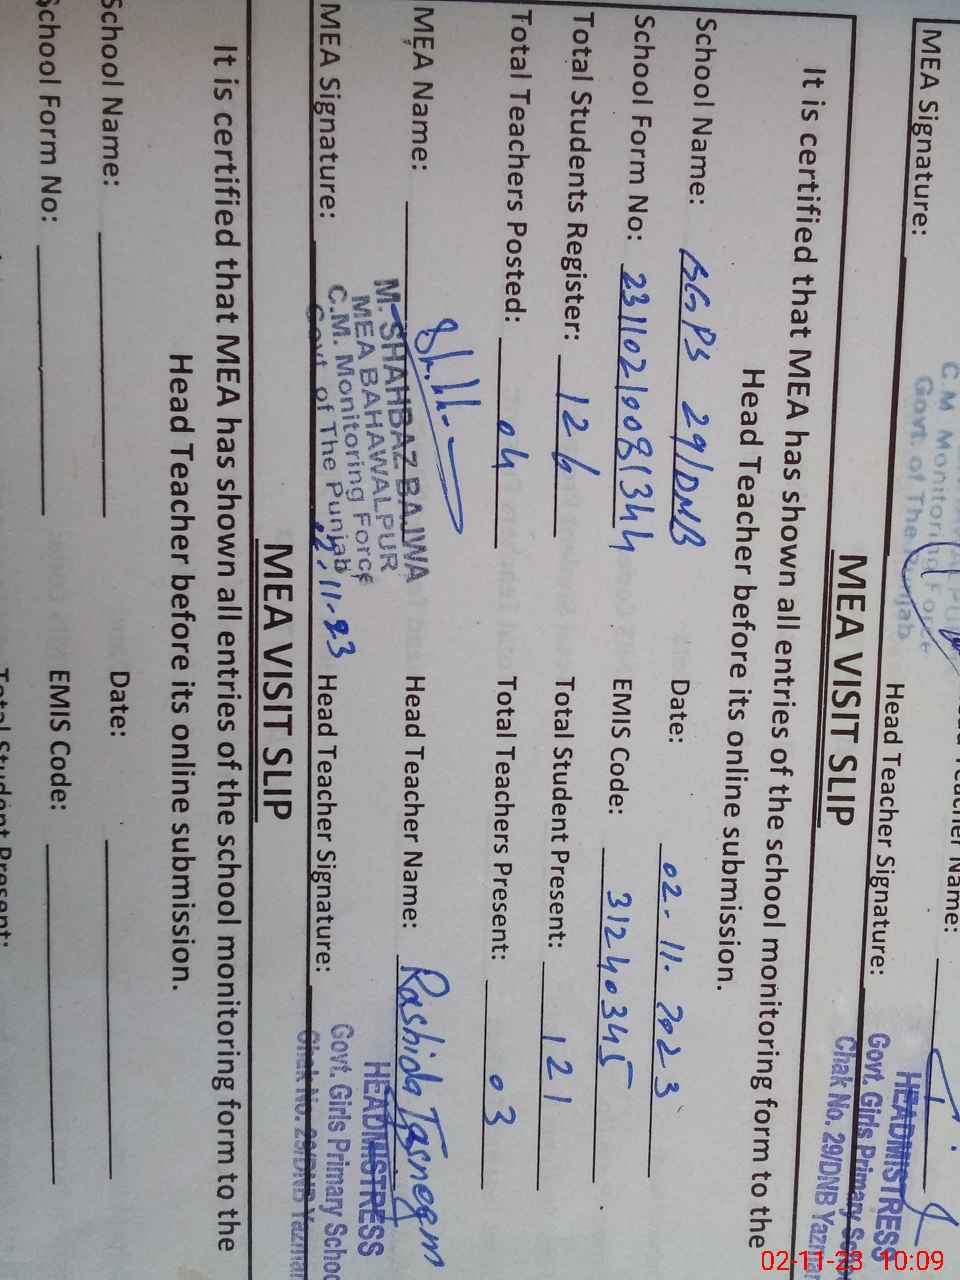 C.M Monitoring Force
Govt. of The Punjab
MEA Signature: Head Teacher Signature:
HEADMISTRESS
Govt. Girls Primary
Chak No. 29/DNB Yazman
MEA VISIT SLIP
It is certified that MEA has shown all entries of the school monitoring form to the
Head Teacher before its online submission.
School Name: GGPS 29/DNB Date: 02-11-2023
School Form No: 23110210081344 EMIS Code: 31240345
Total Students Register: 126 Total Student Present: 121
Total Teachers Posted: 04 Total Teachers Present: 03
MEA Name: Head Teacher Name: Rashida Tasneem
M. SHAHBAZ BAJWA
MEA BAHAWALPUR
C.M. Monitoring Force
Govt. of The Punjab
HEADMISTRESS
Govt. Girls Primary School
Chak No. 29/DNB Yazman
MEA Signature: 2-11-23 Head Teacher Signature:
MEA VISIT SLIP
It is certified that MEA has shown all entries of the school monitoring form to the
Head Teacher before its online submission.
School Name: Date:
School Form No: EMIS Code:
Total Student Present:
02-11-23 10:09